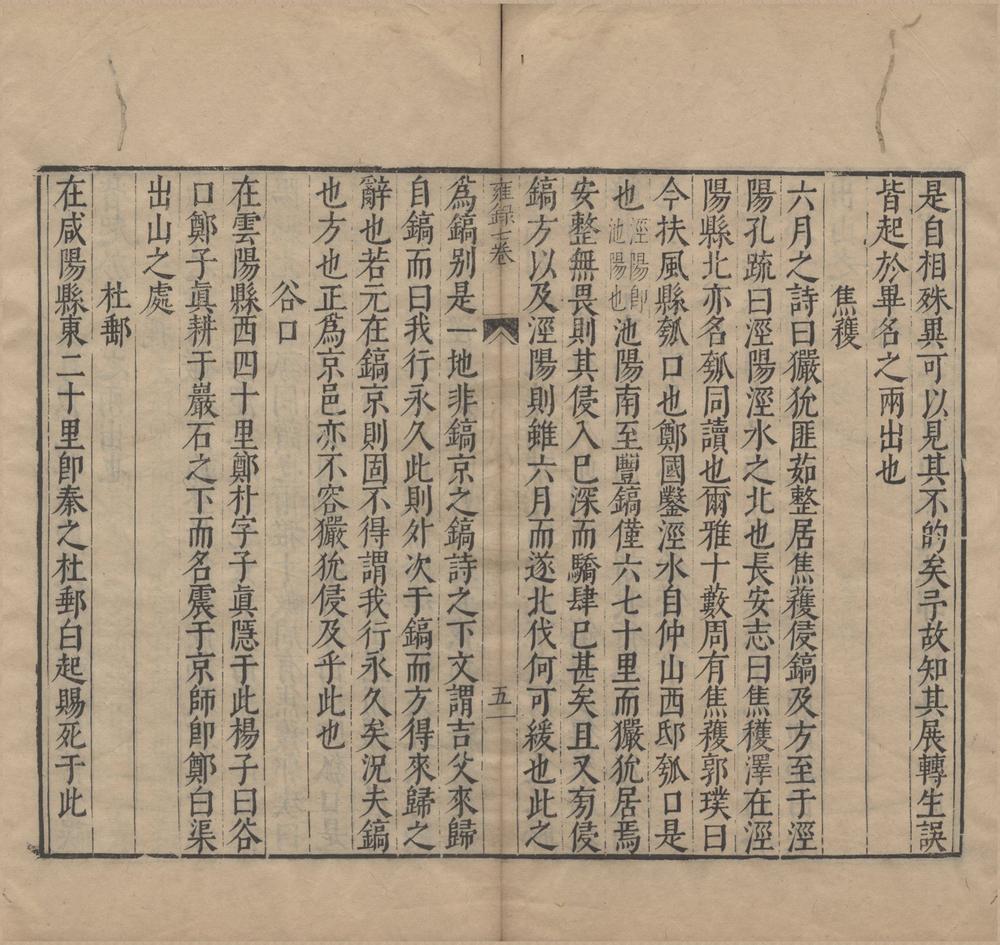 是自相殊異可以見其不的矣予故知其展轉生誤
皆起於畢名之兩出也
焦穫
六月之詩曰玁狁匪茹整居焦穫侵鎬及方至于涇
陽孔疏曰涇陽涇水之北也長安志曰焦穫澤在涇
陽縣北亦名瓠同讀也爾雅十藪周有焦穫郭璞曰
今扶風縣瓠口也鄭國鑿涇水自仲山西邸瓠口是
也涇陽即池陽也池陽南至豐鎬僅六七十里而玁狁居焉
安整無畏則其侵入巳深而驕肆巳甚矣且又有侵
鎬方以及涇陽則雖六月而遂北伐何可緩也此之
雍錄七卷
五
爲鎬别是一地非鎬京之鎬詩之下文謂吉父來歸
自鎬而曰我行永久此則外次于鎬而方得來歸之
辭也若元在鎬京則固不得謂我行永久矣況夫鎬
也方也正爲京邑亦不容玁狁侵及乎此也
谷口
在雲陽縣西四十里鄭朴字子眞隱于此楊子曰谷
口鄭子眞耕于巖石之下而名震于京師即鄭白渠
出山之處
杜郵
在咸陽縣東二十里即秦之杜郵白起賜死于此